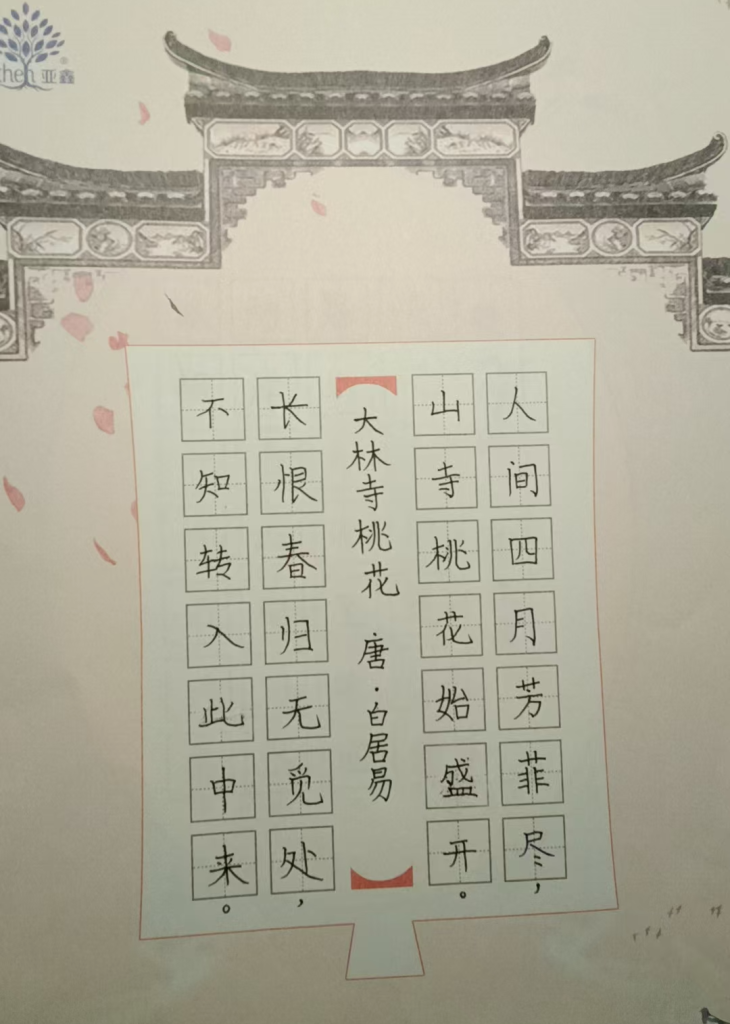 人间四月芳菲尽，
山寺桃花始盛开。
大林寺桃花 唐·白居易
长恨春归无觅处，
不知转入此中来。
chen 亚鑫